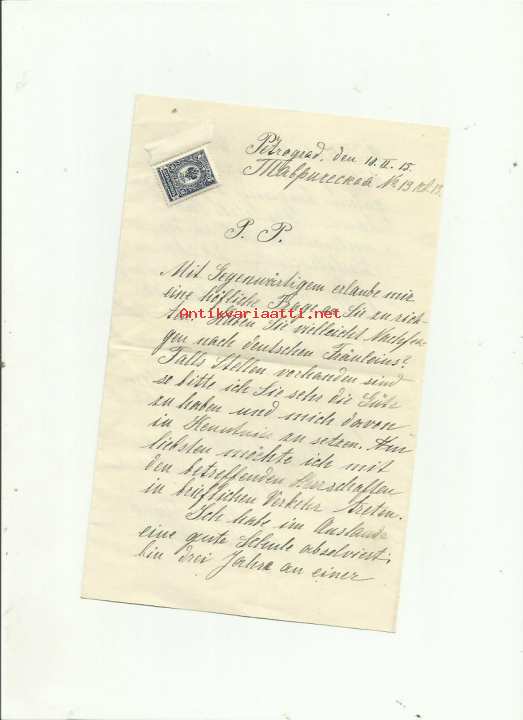 Petrograd, den 10. II. 15.
Таврическая № 13 кв. 19.
P. P.
Mit Gegenwärtigem erlaube mir
eine höfliche Frage an Sie zu rich-
ten. Haben Sie vielleicht Nachfra-
gen nach deutschen Fräuleins?
Falls Stellen vorhanden sind
so bitte ich Sie sehr die Güte
zu haben und mich davon
in Kenntnis zu setzen. Am
liebsten möchte ich mit
den betreffenden Herrschaften
in brieflichen Verkehr treten.
Ich habe im Auslande
eine gute Schule absolviert,
bin drei Jahre an einer
Antikvariaatti.net